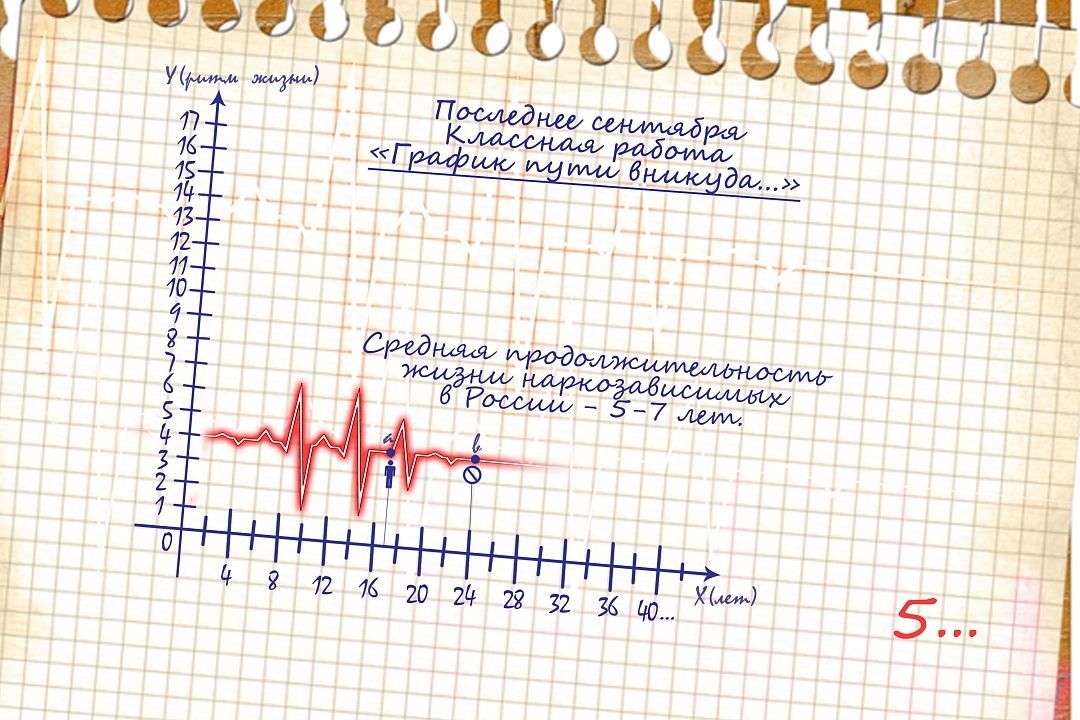 Y(ритм жизни)
Последнее сентября
Классная работа
«График пути вникуда...»
17
16
15
14
13
12
11
10
9
8
7
6
5
4
3
2
1
0
Средняя продолжительность
жизни наркозависимых
в России - 5-7 лет.
a
b
4 8 12 16 20 24 28 32 36 40...
X(лет)
5...